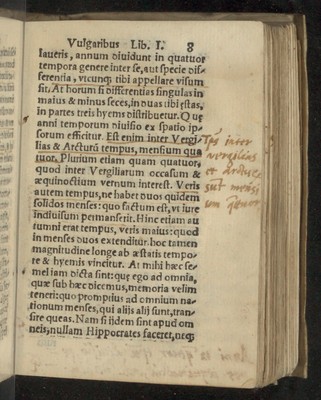 Vulgaribus Lib. I. 8
laueris, annum diuidunt in quatuor
tempora genere inter se, aut specie dif-
ferentia, vtcunq; tibi appellare visum
sit. At horum si differentias singulas in
maius & minus seces, in duas ibi estas,
in partes treis hyems distribuetur. Q uę
anni temporum diuisio ex spatio ip-
sorum efficitur. Est enim inter Vergi-
lias & Arcturū tempus, mensium qua
tuor. Plurium etiam quam quatuor,
quod inter Vergiliarum occasum &
æquinoctium vernum interest. Veris
autem tempus, ne habet duos quidem
solidos menses: quo factum est, vt iure
indiuisum permanserit. Hinc etiam au
tumni erat tempus, veris maius: quod
in menses duos extenditur. hoc tamen
magnitudine longe ab æstatis tempo-
re & hyemis vincitur. At mihi hæc se-
mel iam dicta sint: vt ego ad omnia,
quæ sub hæc dicemus, memoria velim
teneri: quo promptius ad omnium na-
tionum menses, qui aliis alii sunt, tran-
sire queas. Nam si iidem sint apud om
neis, nullam Hippocrates faceret, neq;
inter
vergilias
et